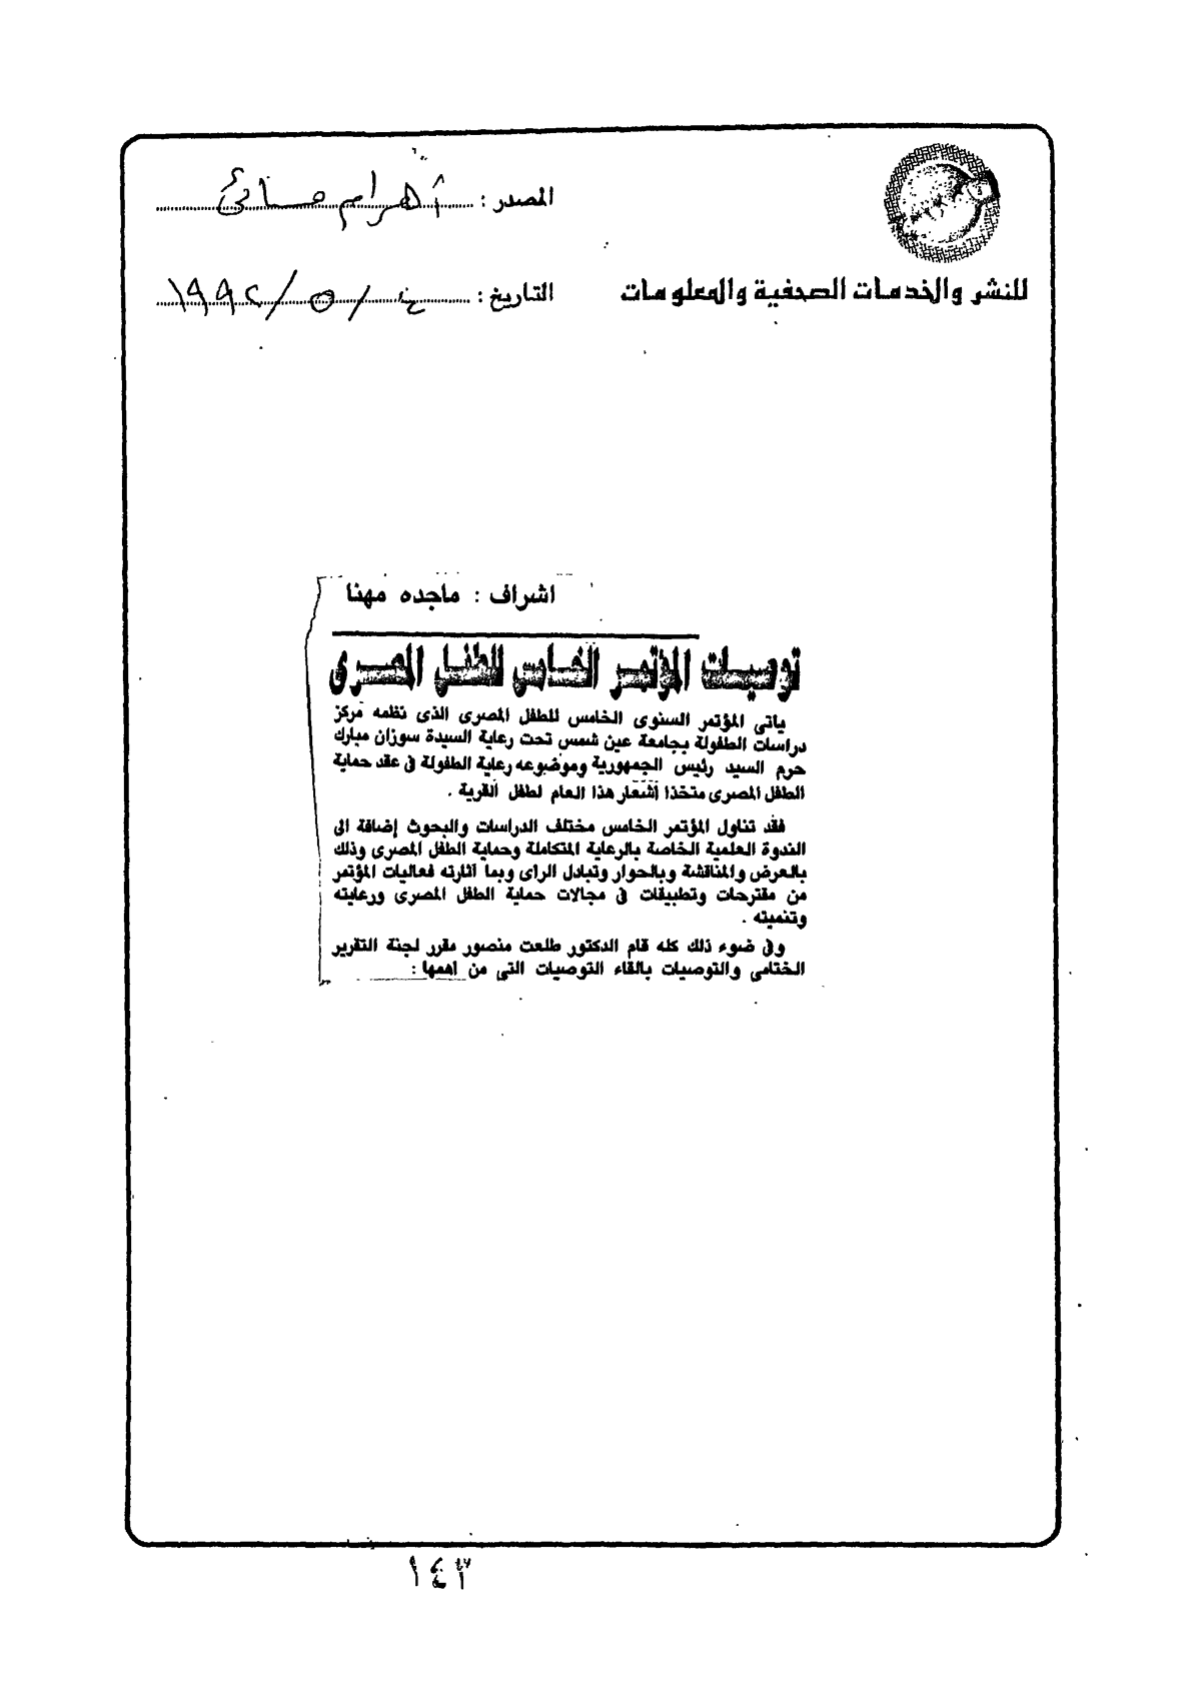 المصدر : أهرام مسائى
للنشر والخدمات الصحفية والمعلومات
التاريخ : ٤ / ٥ / ١٩٩٢
اشراف : ماجده مهنا
توصيات المؤتمر الخامس للطفل المصرى
ياتى المؤتمر السنوى الخامس للطفل المصرى الذى نظمه مركز
دراسات الطفولة بجامعة عين شمس تحت رعاية السيدة سوزان مبارك
حرم السيد رئيس الجمهورية وموضوعه رعاية الطفولة فى عقد حماية
الطفل المصرى متخذا أشعار هذا العام لطفل القرية .
فقد تناول المؤتمر الخامس مختلف الدراسات والبحوث إضافة الى
الندوة العلمية الخاصة بالرعاية المتكاملة وحماية الطفل المصرى وذلك
بالعرض والمناقشة وبالحوار وتبادل الراى وبما اثارته فعاليات المؤتمر
من مقترحات وتطبيقات فى مجالات حماية الطفل المصرى ورعايته
وتنميته .
وفى ضوء ذلك كله قام الدكتور طلعت منصور مقرر لجنة التقرير
الختامى والتوصيات بالقاء التوصيات التى من اهمها :
١٤٣